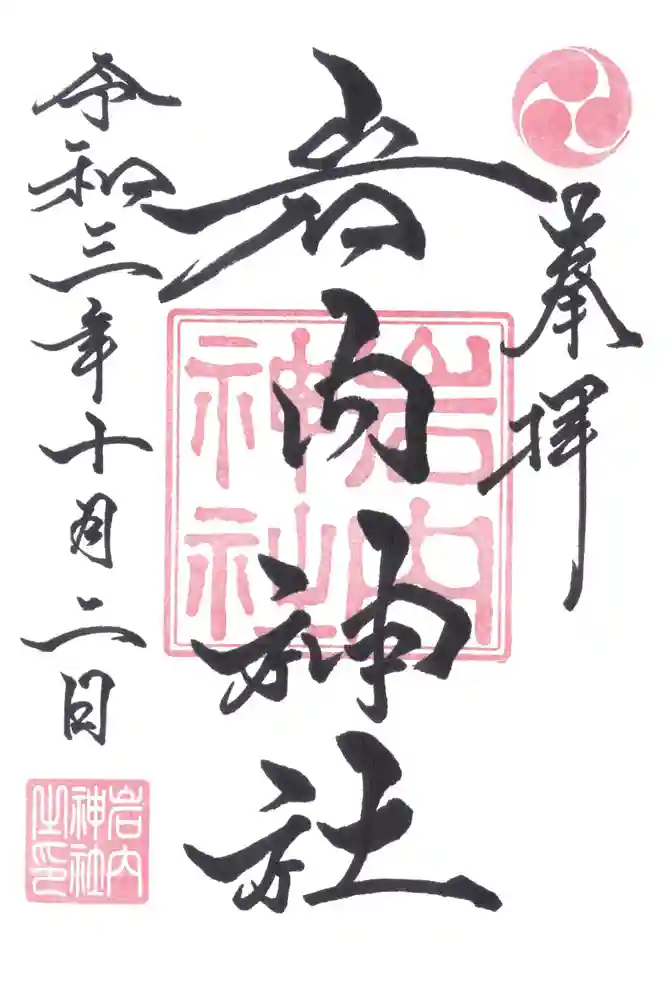 奉拝
岩内神社
岩内
神社
令和三年十月二日
岩内
神社
之印